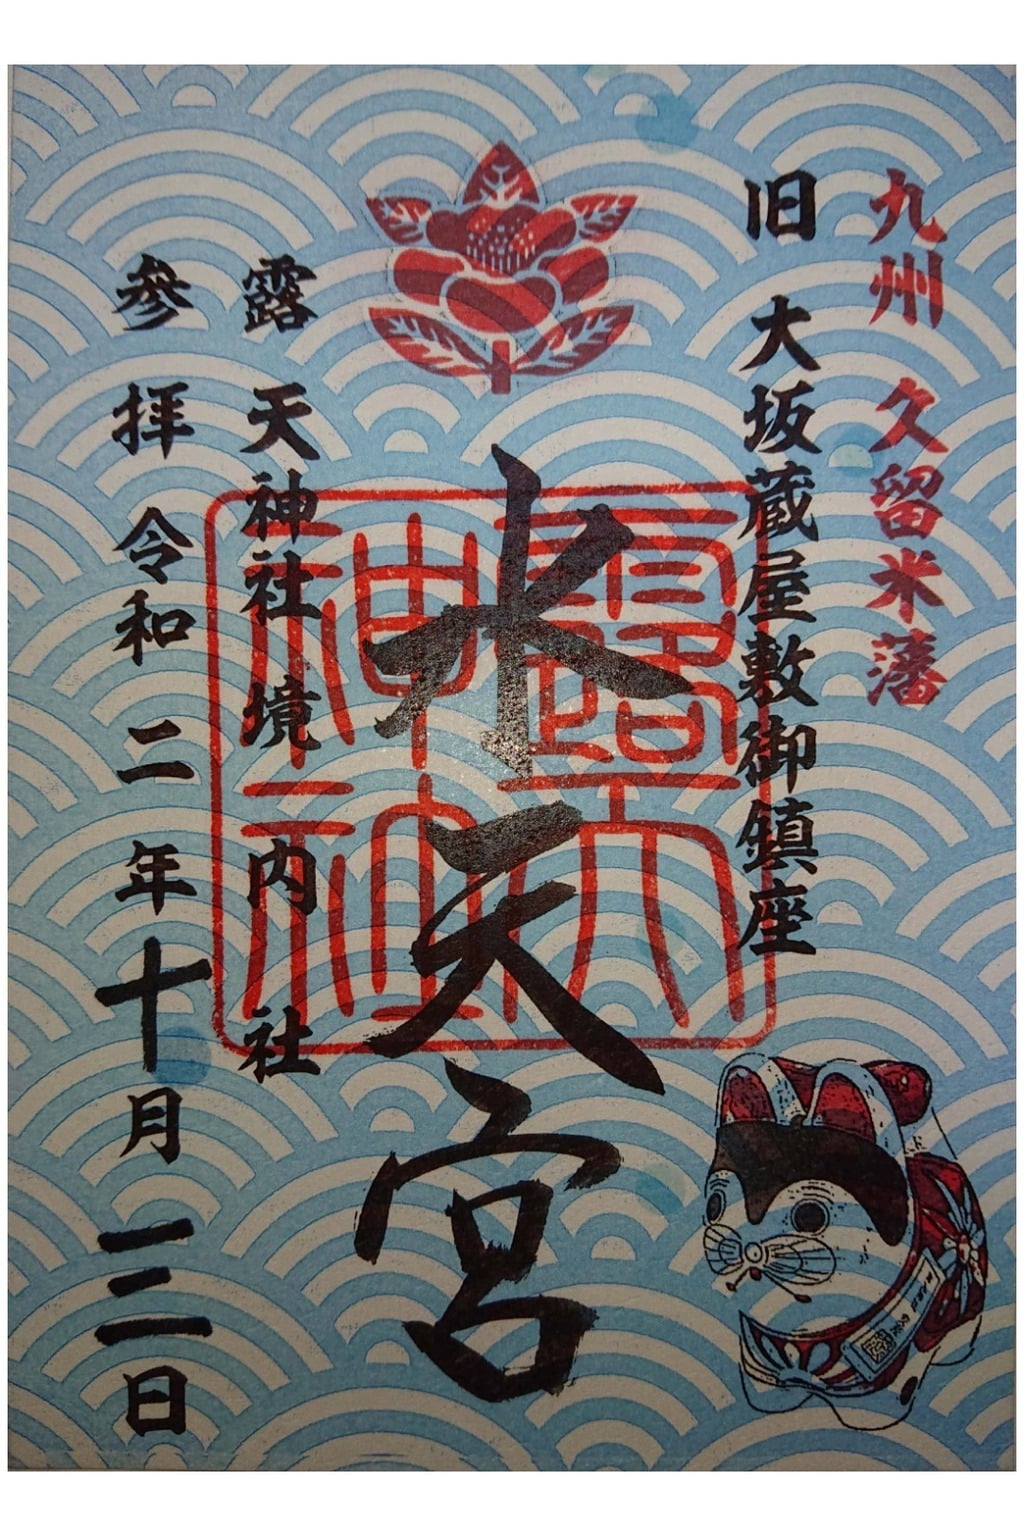 九州 久留米藩
旧 大坂蔵屋敷御鎮座
水天宮
露天神社
露 天神社 境 内 社
参 拝 令和 二 年 十月 三日